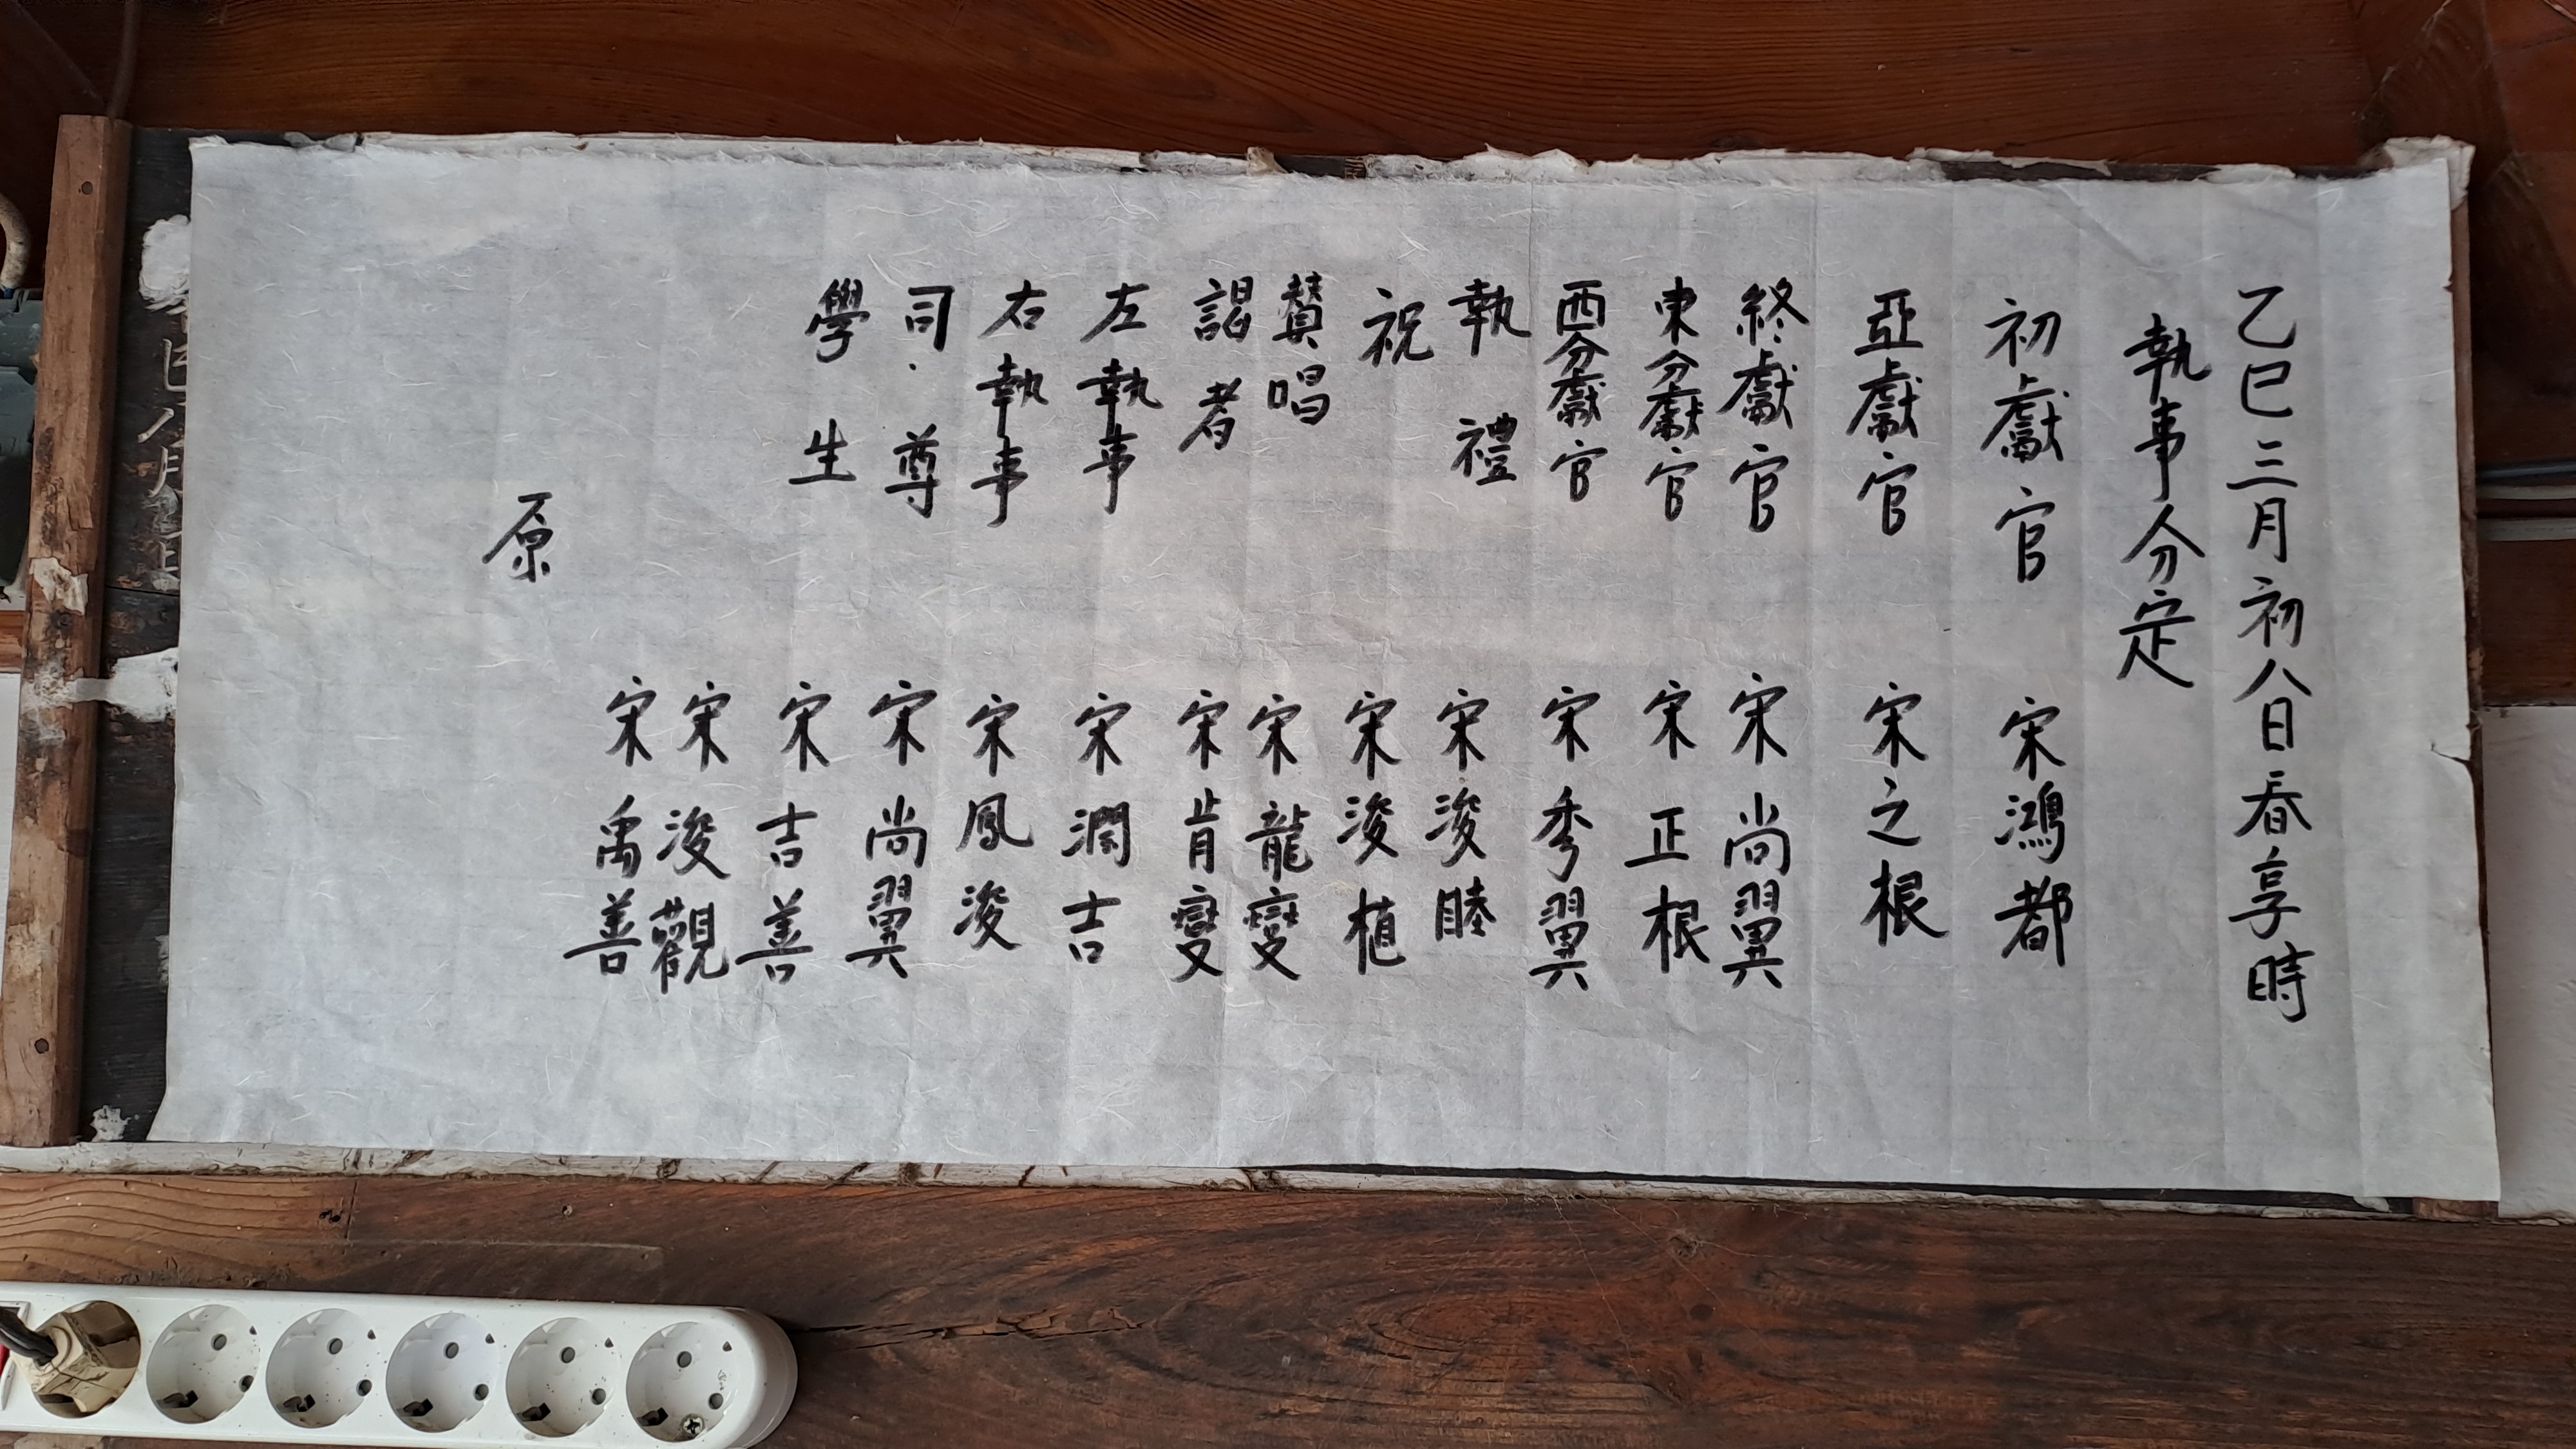 乙巳三月初八日春享時
執事分定
初獻官 宋鴻都
亞獻官 宋之根
終獻官 宋尚翼
東分獻官 宋正根
西分獻官 宋秀翼
執禮 宋浚睦
祝 宋浚植
賛唱 宋龍變
謁者 宋肯變
左執事 宋潤吉
右執事 宋鳳浚
司尊 宋尚翼
學生 宋吉善
宋浚觀
宋禹善
原